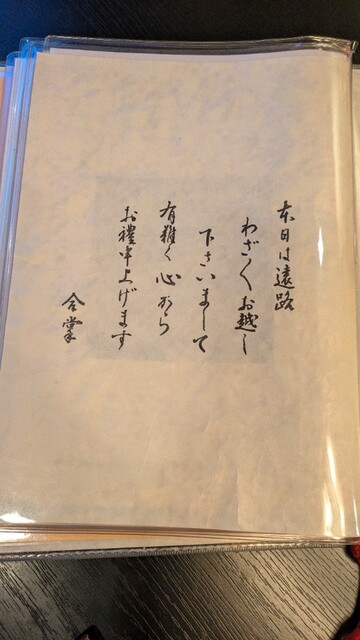 本日は遠路
わざ〱お越し
下さいまして
有難く心から
お禮申上げます